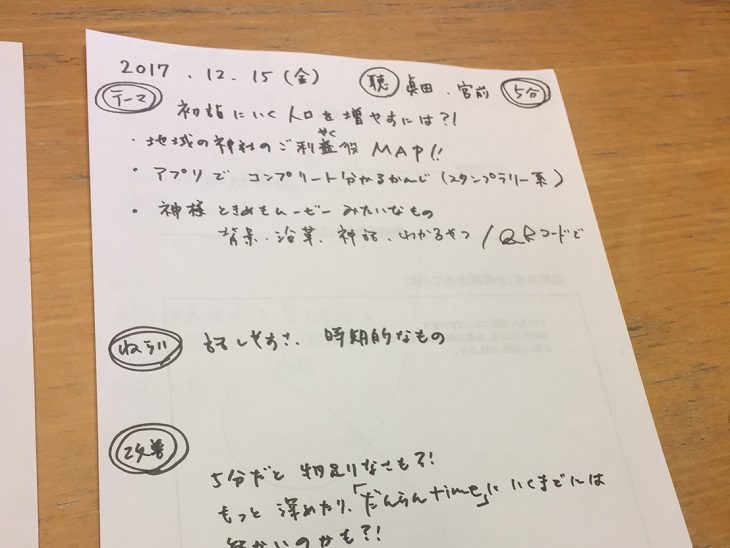 2017.12.15(金) 聴 眞田、宮前 5分
テーマ 初詣にいく人口を増やすには?!
・地域の神社のご利益 MAP!!
やく
・アプリで コンプリート分かるかんじ(スタンプラリー系)
・神様ときめきムービー みたいなもの
背景、沿革、神話、わかるやつ / QRコードで
ねらい 話しやすさ、時期的なもの
改善
5分だと 物足りなさも?!
もっと 深めたり、「だんらんtime」に いくまでには
のかも?!